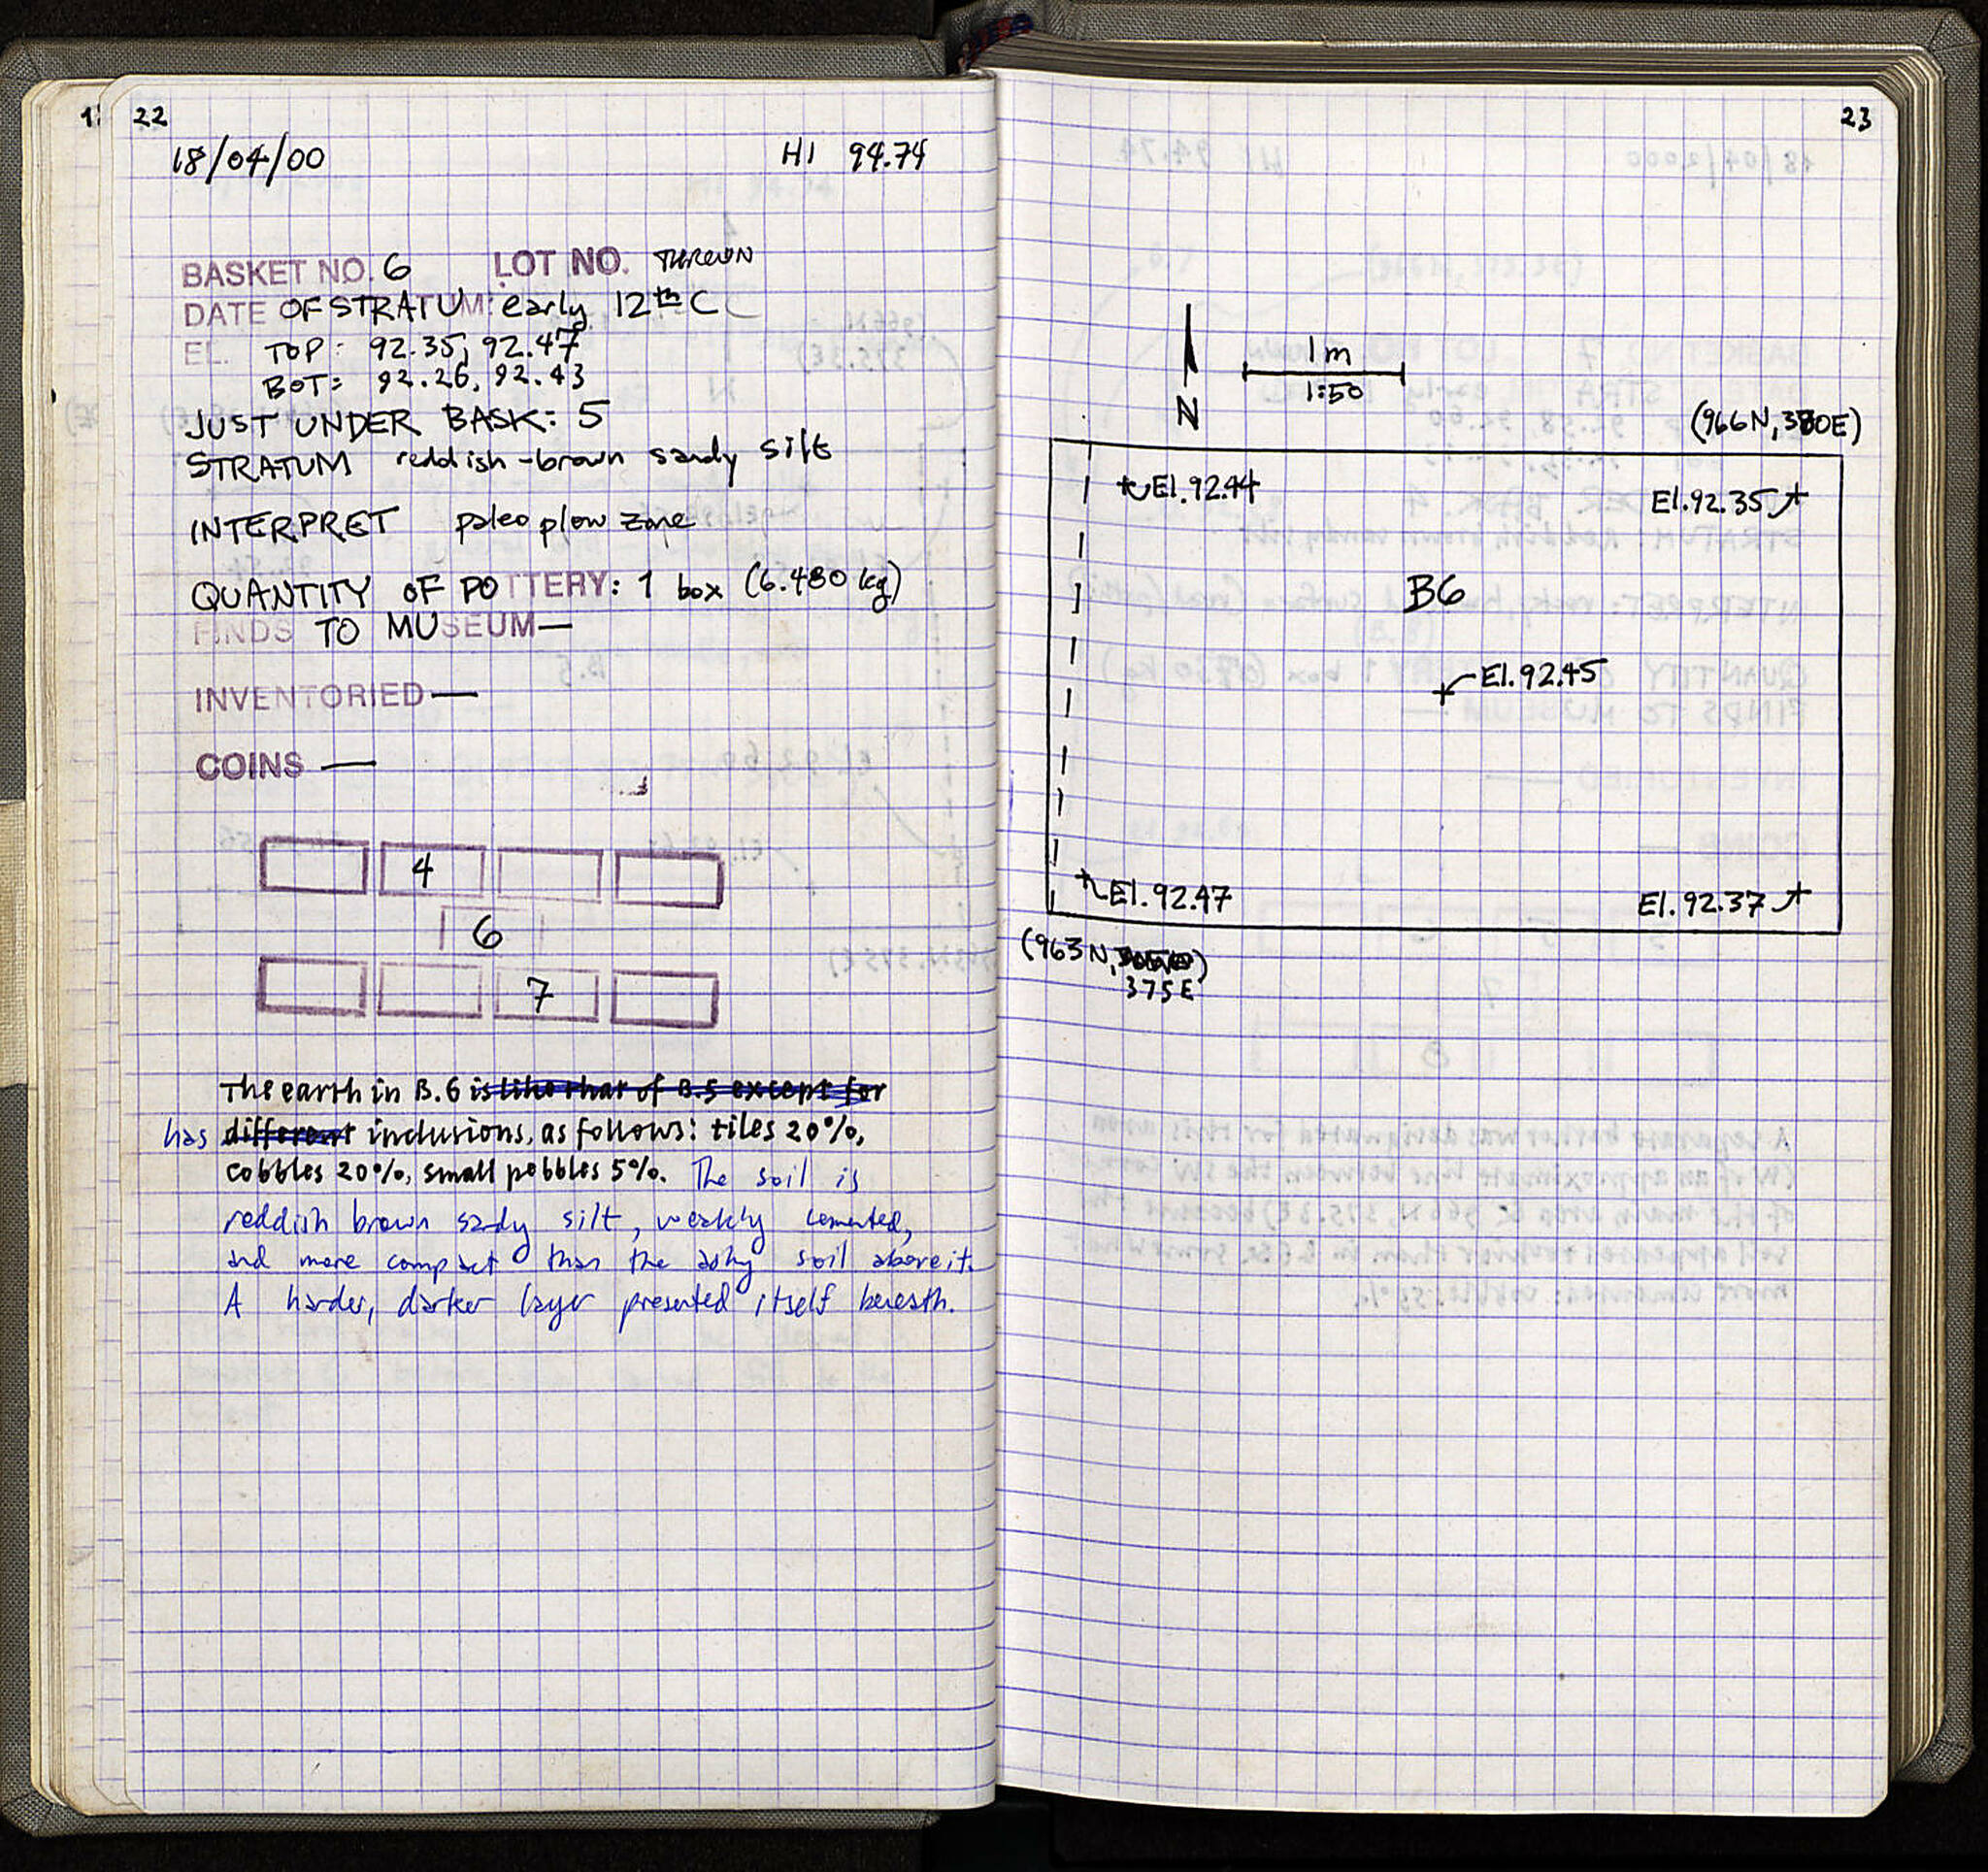 22
18/04/00 HI 94.74
BASKET NO. 6 LOT NO. THROWN
DATE OF STRATUM: early 12th C
EL. TOP: 92.35, 92.47
BOT: 92.26, 92.43
JUST UNDER BASK: 5
STRATUM reddish-brown sandy silt
INTERPRET paleo plow zone
QUANTITY OF POTTERY: 1 box (6.480 kg)
FINDS TO MUSEUM—
INVENTORIED —
COINS —
4
6
7
The earth in B.6 is like that of B.5 except for
has different inclusions, as follows: tiles 20%,
cobbles 20%, small pebbles 5%. The soil is
reddish brown sandy silt, weakly cemented,
and more compact than the ashy soil above it.
A harder, darker layer presented itself beneath.
23
N
1m
1:50
(966N, 380E)
El. 92.44
El. 92.35
B6
El. 92.45
El. 92.47
El. 92.37
(963N, )
375E